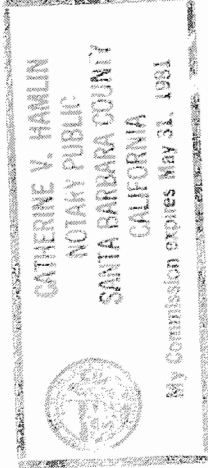 CATHERINE V. HAMLIN
NOTARY PUBLIC
SANTA BARBARA COUNTY
CALIFORNIA
My Commission expires May 31, 1981